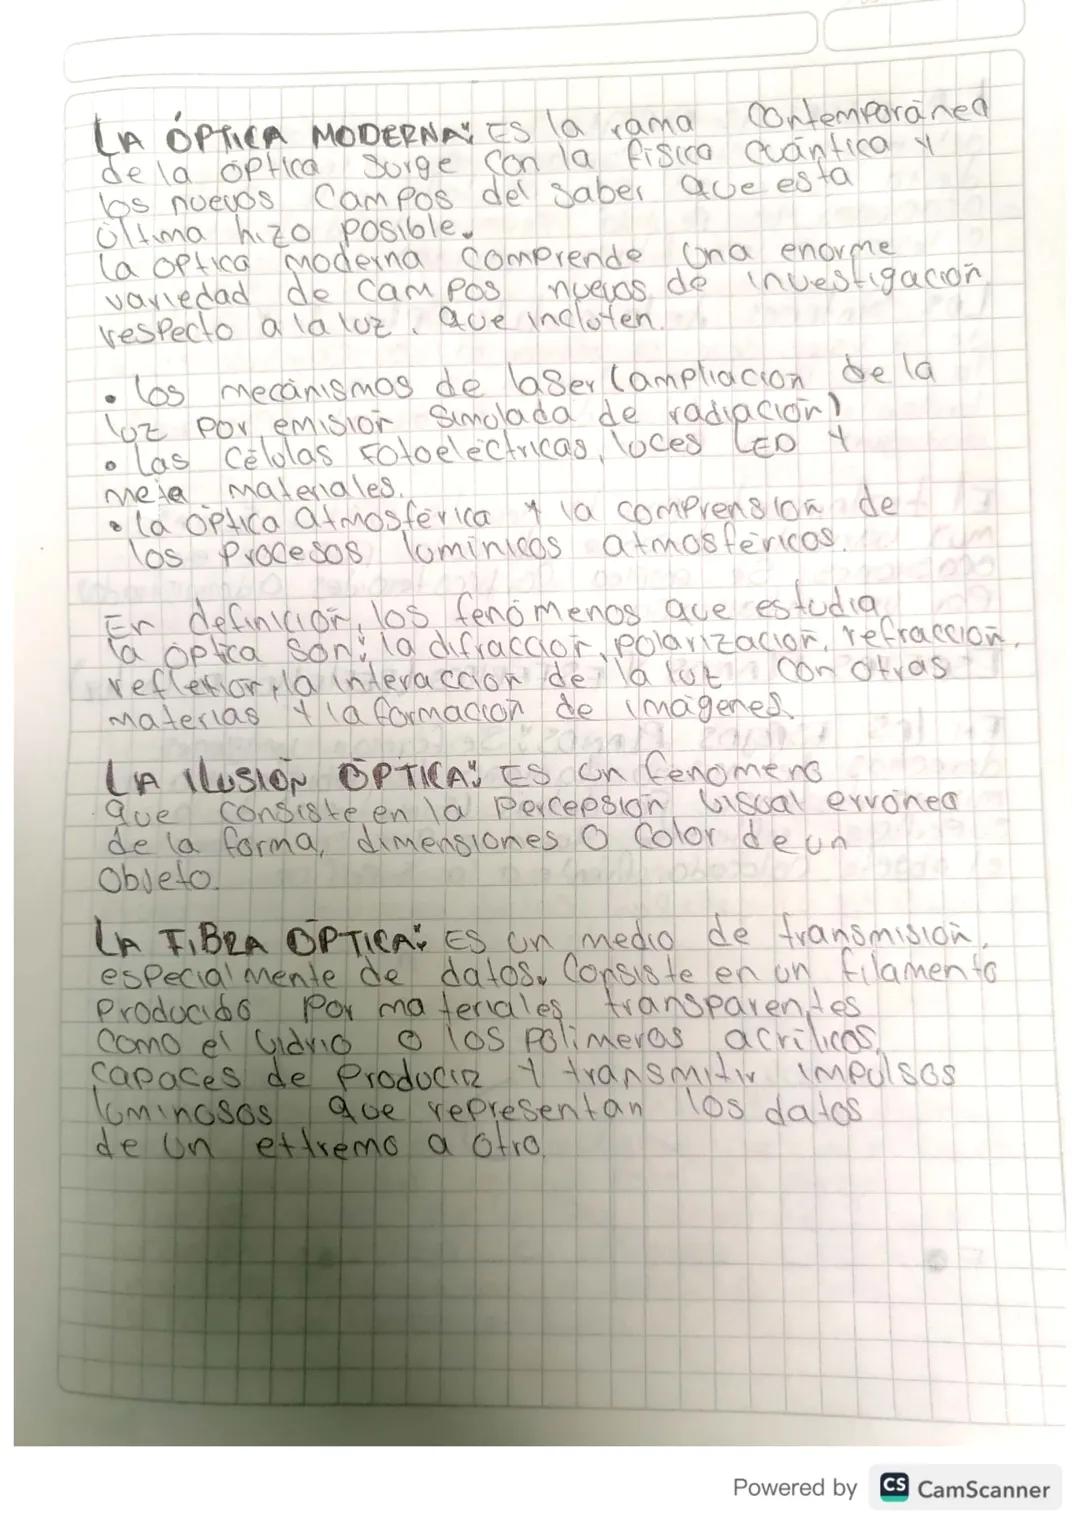 LA ÓPTICA MODERNA: ES la rama contemporánea
de la óptica surge con la física cuántica y
los nuevos campos del saber que esta
última hizo posible.
la óptica moderna comprende una enorme
variedad de campos nuevos de investigación
respecto a la luz, que incluyen.
• los mecánismos de laser (ampliación de la
luz por emisión simulada de radiación)
• las células fotoeléctricas, luces LED y
meta materiales.
• la óptica atmosférica y la comprensión de
los procesos lumínicos atmosféricos.
En definición, los fenómenos que estudia
la óptica son: la difracción, polarización, refracción,
reflexión, la interacción de la luz con otras
materias y la formación de imágenes.
LA ILUSIÓN ÓPTICA: ES un fenomeno
que consiste en la percepsión visual erronea
de la forma, dimensiones o color de un
objeto.
LA FIBRA ÓPTICA: ES un medio de transmisión,
especialmente de datos. Consiste en un filamento
producido por materiales transparentes
como el vidrio o los polímeros acrílicos,
capaces de producir y transmitir impulsos
luminosos que representan los datos
de un extremo a otro.
Powered by CS CamScanner